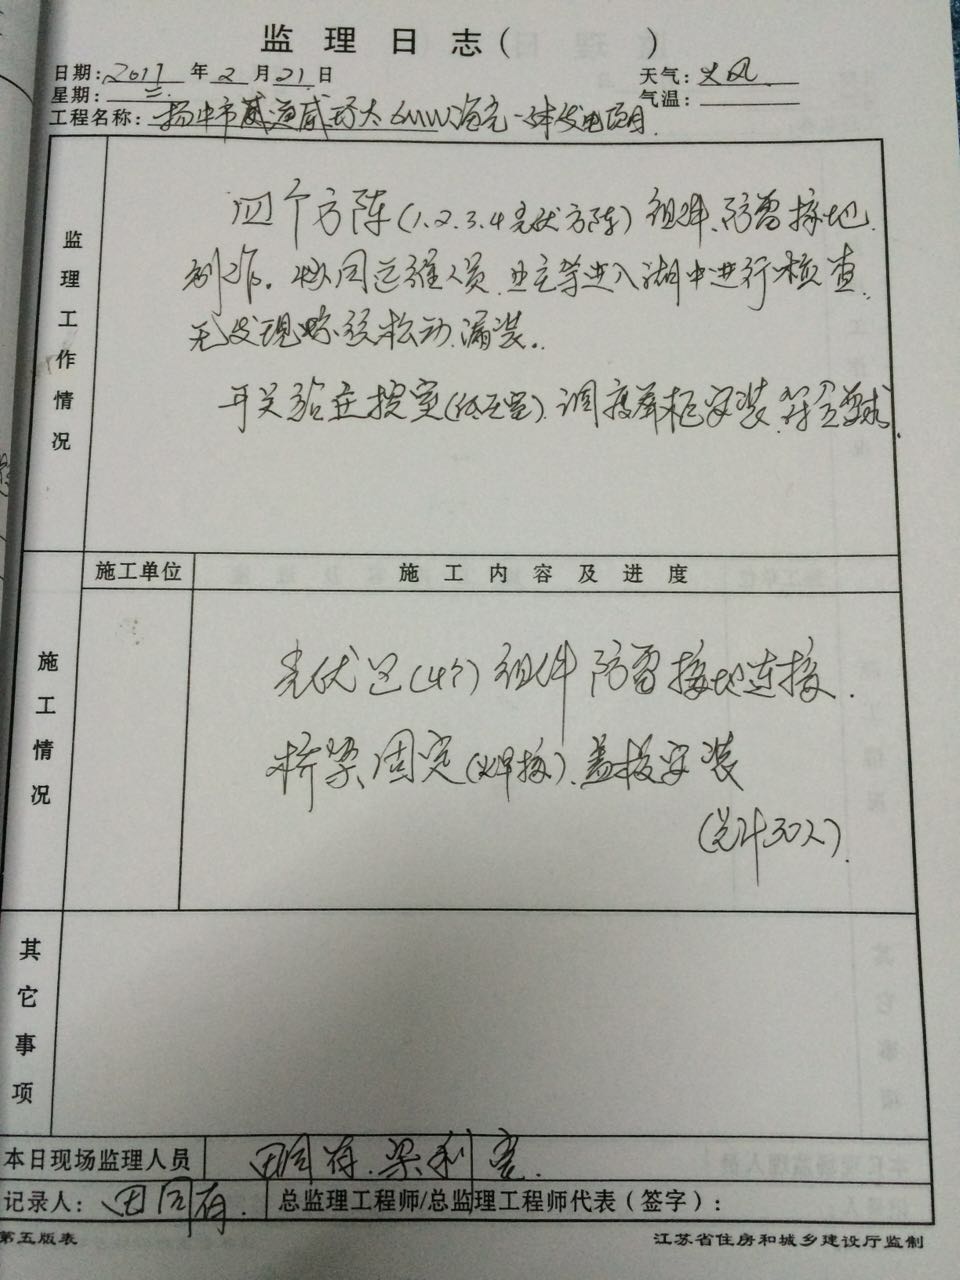 监理日志( )
日期: 2017 年 2 月 21 日 天气: 大风
星期: 二 气温:
工程名称: 扬中市 6MW 渔光一体发电项目
监理工作情况
四个方阵(1.2.3.4光伏方阵)组件、防雷接地
制作。协同运维人员、业主等进入湖中进行核查,
无发现 松动、漏装。
开关站主控室( )、调度屏柜安装、符合要求.
施工单位 施工内容及进度
施工情况
光伏区(4个)组件防雷接地连接.
桥架固定(焊接)、盖板安装
(总计30人).
其它事项
本日现场监理人员 田同存、梁利
记录人: 田同存. 总监理工程师/总监理工程师代表(签字):
第五版表 江苏省住房和城乡建设厅监制